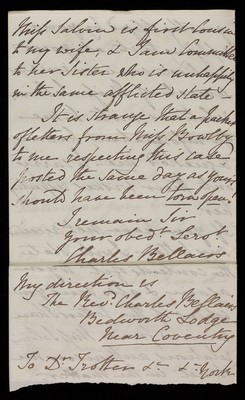 Miss Salvin is first Cousin
to my wife, & I am Committee
to her Sister who is unhappily
in the same afflicted state —
It is strange that a packet
of letters from Miss Bowlby
to me respecting this case
posted the same day as yours
should have been torn open.
I remain Sir
Your obedt. Servt
Charles Bellairs
My direction is
The Revd. Charles Bellairs
Bedworth Lodge
Near Coventry
To Dr. Trotter &c &c York